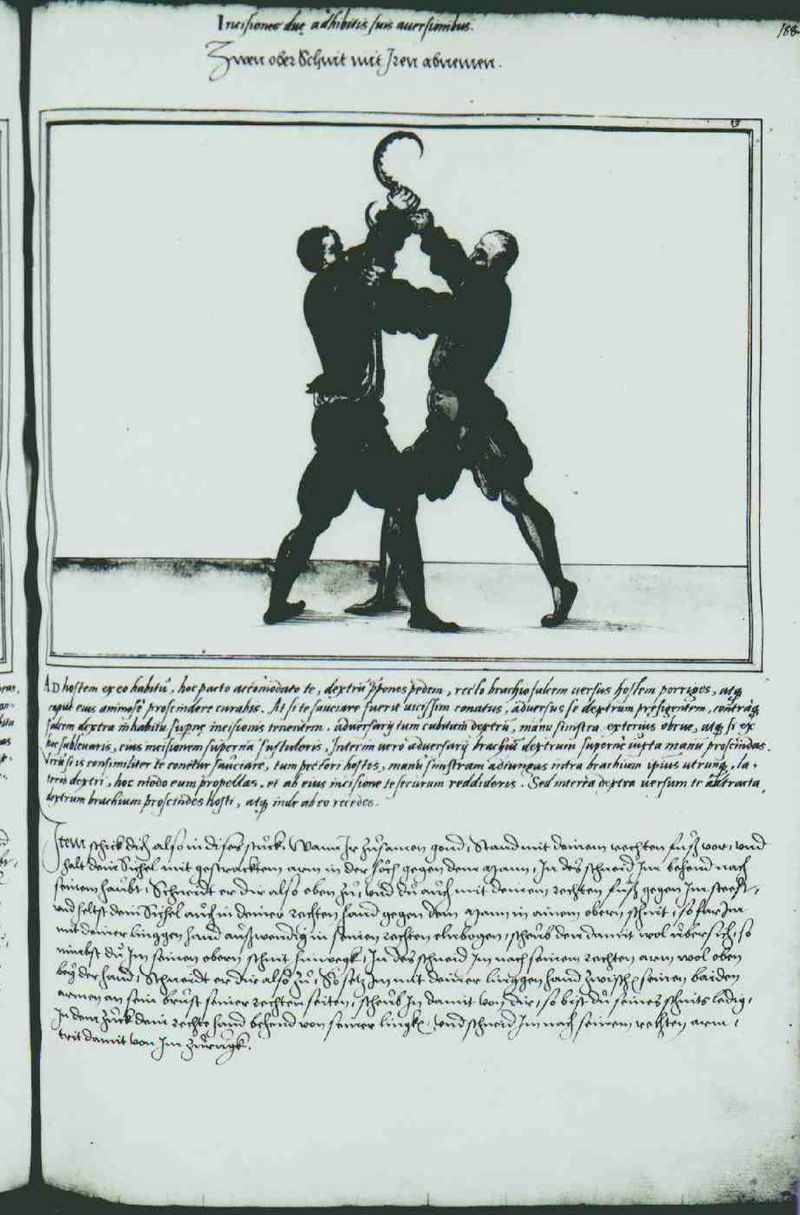 Incisiones duę adhibitis suis auersionibus.
188
Zwen ober Schnit mit Iren abnemen.
19
AD hostem ex eo habitũ, hoc pacto accõmodato te, dextrũ pponespedem, recto brachio falcem uersus hostem porriges, atq
caput eius animosè proscindere curabis. At si te sauciare fuerit uicissim conatus, aduersus se dextrum prefigentem, contraq
falcem dextra in habitu suprę incisionis tenentem, aduersarij tum cubitum dextrũ, manu sinistra exterius obrue, atq si ex
hoc subleuaris, eius incisionem superna sustuleris. Interim uero aduersarij brachiũ dextrum superne iuxta manũ proscindas.
Verũ si is consimiliter te conetur sauciare, tum pectori hostis, manũ sinistram adiungas intra brachium ipsius utrunq, la-
teris dextri, hoc modo eum propellas, et ab eius incisione te securum reddideris. Sed interea dextra uersum te abtracta
dextrum brachium proscindes hosti, atq inde ab eo recedes.
Item schick dich also in diser stuck, Wann Ir zusamen gond, Stand mit deinem rechten fuß vor, und
halt dein Sichel mit gestracktem arm in der höch gegen dem Mann, In des schneid Im behend nach
seinem haubt, Schneidt er dir also oben zu, und du auch mit deinem rechten fuß gegen Im steest,
und heltst dein Sichel auch in deiner rechten hand gegen dem Mann in ainem obern schnit, so far Im
mit deiner linggen hand außwendig in seinen rechten elnbogen, scheub den damit wol ubersich, so
nimbst du Im seinen obern schnit hinwegk, In des schneid Im nach seinem rechten arm wol oben
bey der hand, Schneidt er dir also zu, So setz Im mit deiner linggen hand zwischen seinen baiden
armen an sein brust seiner rechten seiten, scheub In damit von dir, so bist du seines schnits ledig,
In dem zuck dein rechte hand behend von seiner lingkn, und schneid Im nach seinem rechten arm,
trit damit von Im zurugk.